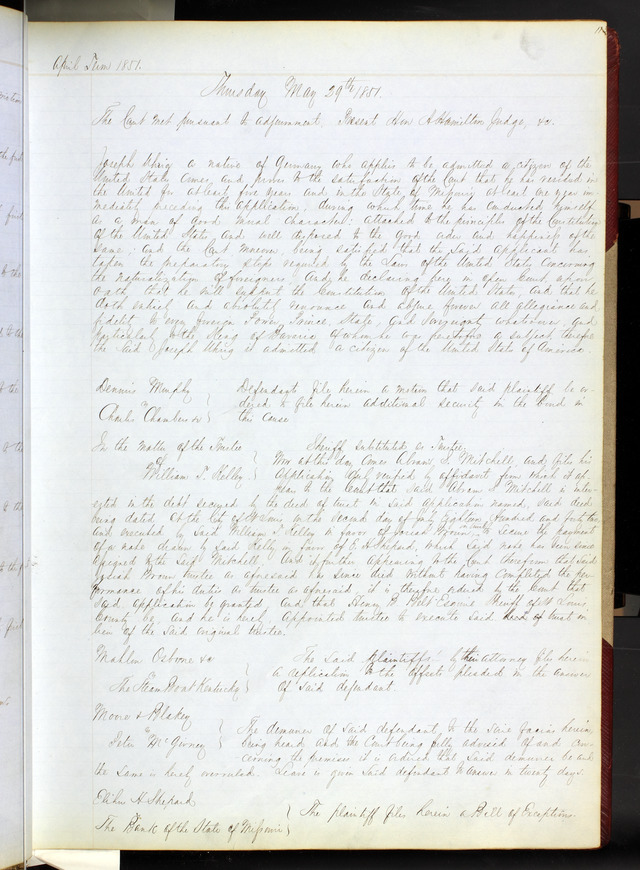 April Term 1851.
Thursday May 29th 1851.
The Court met pursuant to adjournment. Present Hon A Hamilton Judge, &c.
Joseph Uhrig a native of Germany who applies to be admitted a citizen of the
United States comes and proves to the satisfaction of the Court that he has resided in
the United States at least five years and in the State of Missouri at least one year im-
mediately preceding this application, during which time he has conducted himself
as a man of good moral character: attached to the principles of the Constitution
of the United States and well disposed to the good order and happiness of the
same; and the Court moreover, being satisfied that the said applicant has
taken the preparatory steps required by the Laws of the United States concerning
the naturalization of foreigners. And he declaring here in open Court, upon
oath that he will support the Constitution of the United States, and that he
doth entirely and absolutely renounce and abjure forever all allegiance and
fidelity to every foreign Power, Prince, State, and Sovereignty whatsoever and
particularly to the King of Bavaria of whom he was heretofore a subject, therefore
the said Joseph Uhrig is admitted a citizen of the United States of America.
Dennis Murphy
vs
Charles Chambers &c
Defendant files herein a motion that said plaintiff be or-
dered to file herein additional security in the bond in
this cause
In the matter of the Trustee
of
William T. Kelley
Sheriff substituted as Trustee.
Now at this day comes Abram S. Mitchell, and files his
application duly verified by affidavit from which it ap-
pears to the Court that said Abram S Mitchell is inter-
ested in the debt secured by the deed of trust in said application named, said deed
being dated at the City of St Louis, on the second day of July Eighteen Hundred and forty
and executed by said William T. Kelley in favor of Josiah Brown, to secure the payment
of a note drawn by said Kelley in favor of E H Shepard, which said note has been since
assigned to the said Mitchell, And it further appearing to the Court therefrom that said
Josiah Brown trustee as aforesaid has since died without having completed the per-
formance of his duties as trustee as aforesaid, it is therefore ordered by the Court that
said application be granted and that Henry B. Belt Esquire Sheriff of St Louis
County be, and he is hereby, appointed trustee to execute said deed of trust in
lieu of the said original trustee.
Mallen Osborne &c
vs
The Steam Boat Kentucky
The said plaintiffs by their attorney files herein
a replication to the offsets pleaded in the answer
of said defendant.
Moore & Blakey
vs
Peter McGerney
The demurrer of said defendant to the scire facias herein,
being heard and the Court being fully advised of and con-
cerning the premises it is ordered that said demurrer be and
the same is hereby overruled. Leave is given said defendant to answer in twenty days.
Elihu H Shepard
vs
The Bank of the State of Missouri
The plaintiff files herein a Bill of Exceptions.